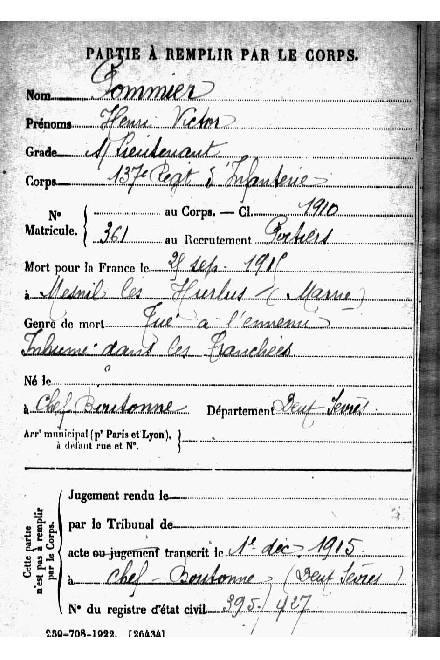 PARTIE À REMPLIR PAR LE CORPS.
Nom Pommier
Prénoms Henri Victor
Grade S/Lieutenant
Corps 137e Regt d'Infanterie
Nº Matricule. { au Corps. — Cl. 1910
361 au Recrutement Poitiers
Mort pour la France le 25 sep. 1915
à Mesnil les Hurlus (Marne)
Genre de mort Tué à l'ennemi
Inhumé dans les Tranchées
Né le
à Chef Boutonne Département Deux Sèvres
Arrt municipal (pr Paris et Lyon), à défaut rue et Nº. }
Cette partie n'est pas à remplir par le Corps.
Jugement rendu le
par le Tribunal de
acte ou jugement transcrit le 1er déc 1915
à Chef-Boutonne (Deux Sèvres)
Nº du registre d'état civil 395/427
259-708-1922. [26434]